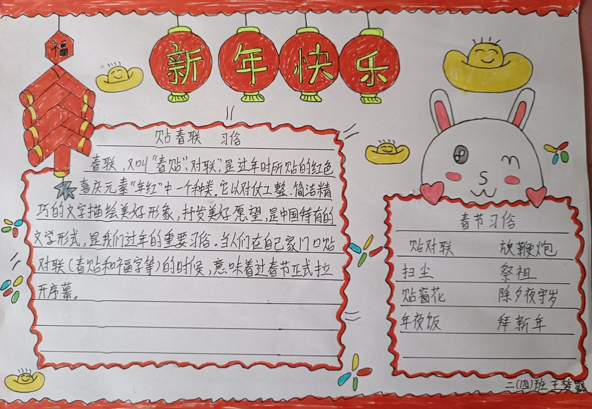 福
新年快乐
贴春联 习俗
春联，又叫“春贴”、对联”，是过年时所贴的红色
喜庆元素“年红”中一个种类。它以对仗工整、简洁精
巧的文字描绘美好形象，抒发美好愿望，是中国特有的
文学形式，是我们过年的重要习俗。当人们在自己家门口贴
对联（春贴和福字等）的时候，意味着过春节正式拉
开序幕。
春节习俗
贴对联 放鞭炮
扫尘 祭祖
贴窗花 除夕夜守岁
年夜饭 拜新年
二（四）班 王